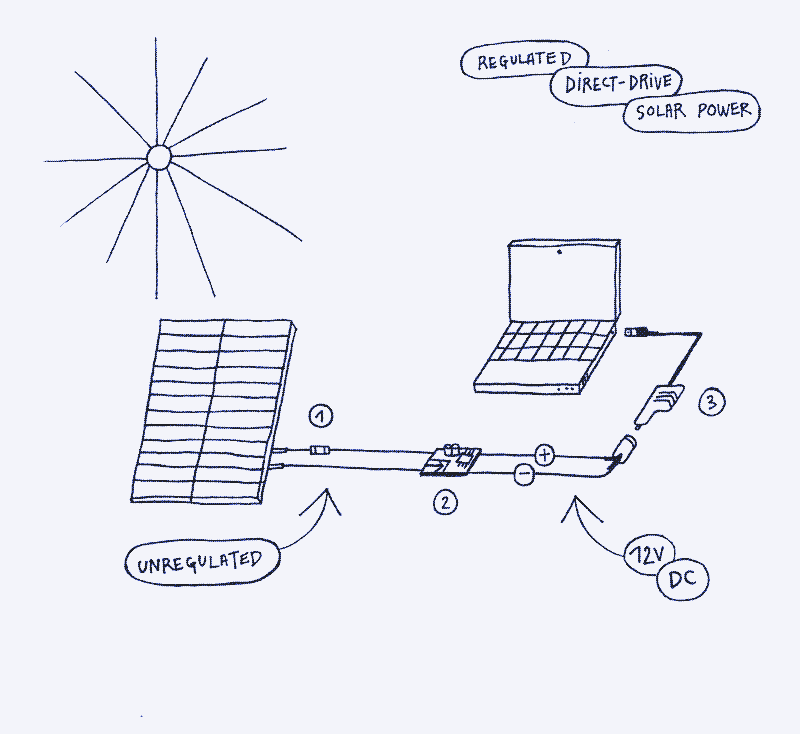 REGULATED
DIRECT-DRIVE
SOLAR POWER
1
3
+
-
2
UNREGULATED
12V
DC